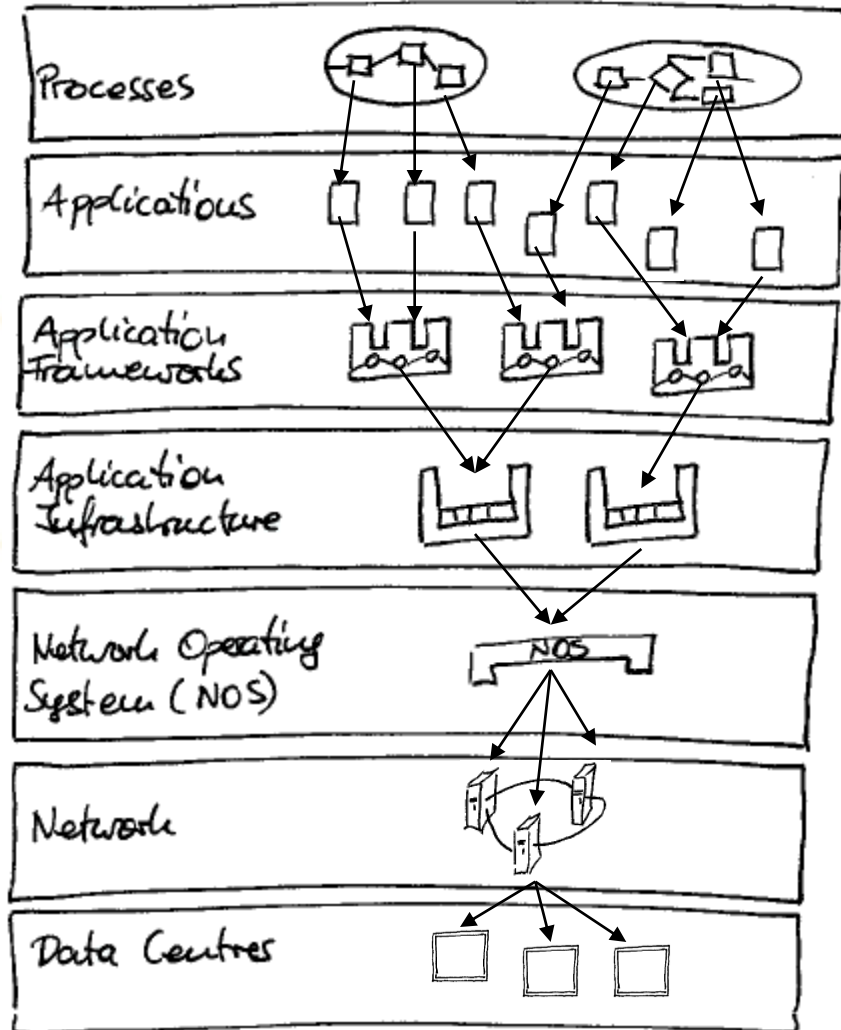 Processes
Applications
Application
Frameworks
Application
Infrastructure
Network Operating
System (NOS)
NOS
Network
Data Centres